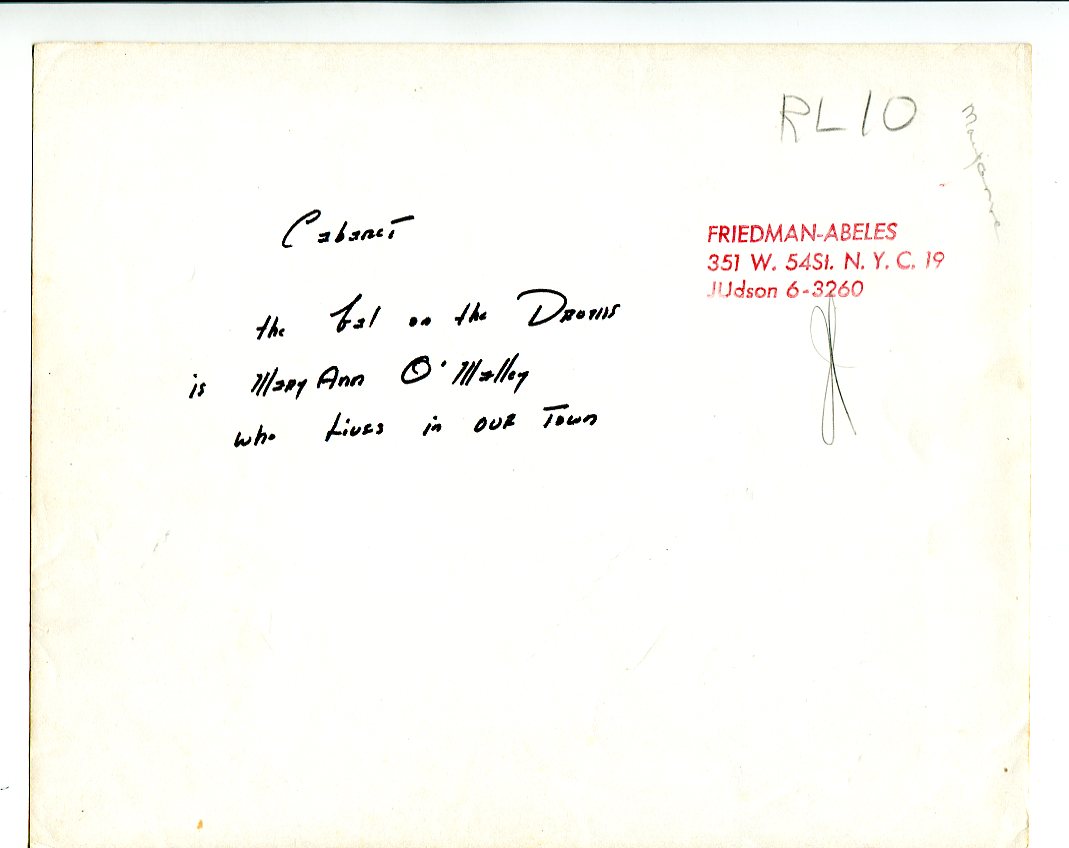 RL10
Cabaret
the Gal on the Drums
is MaryAnn O'Malley
who Lives in our Town
FRIEDMAN-ABELES
351 W. 54St. N. Y. C. 19
JUdson 6-3260